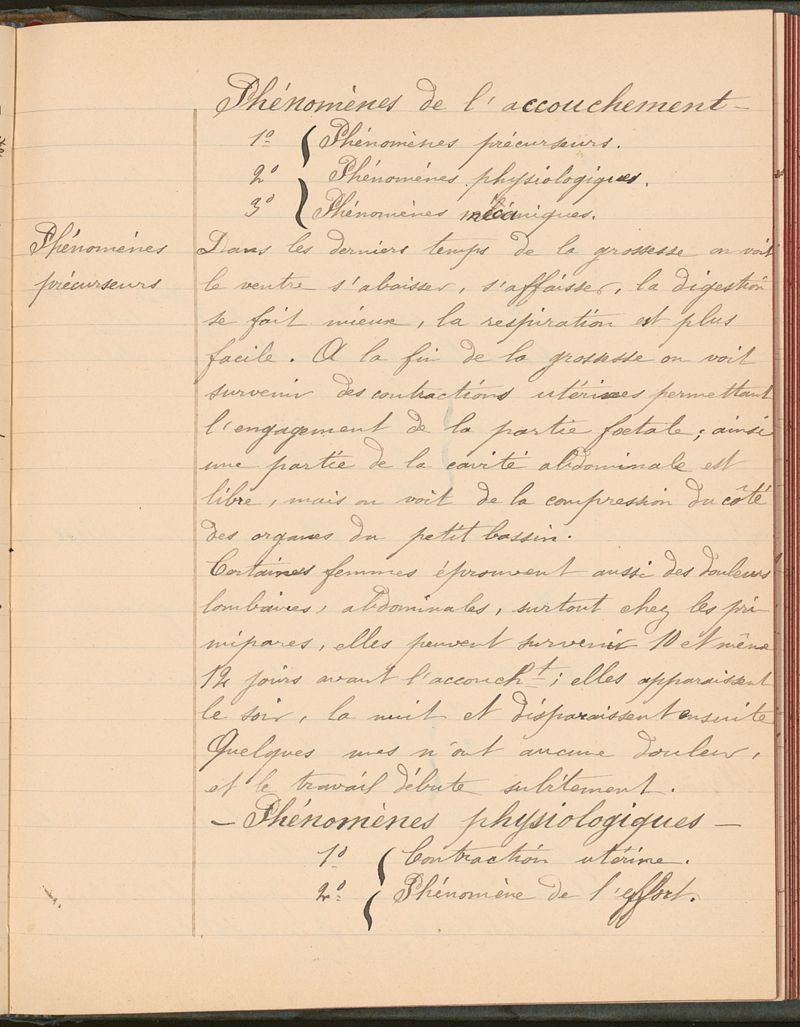 Phénomènes de l'accouchement -
1º { Phénomènes précurseurs.
2º Phénomènes physiologiques.
3º { Phénomènes mécaniques.
Phénomènes
précurseurs
Dans les derniers temps de la grossesse on voit
le ventre s'abaisser, s'affaisser, la digestion
se fait mieux, la respiration est plus
facile. A la fin de la grossesse on voit
survenir des contractions utérines permettant
l'engagement de la partie fœtale ; ainsi
une partie de la cavité abdominale est
libre, mais on voit de la compression du côté
des organes du petit bassin.
Certaines femmes éprouvent aussi des douleurs
lombaires, abdominales, surtout chez les pri
mipares, elles peuvent survenir 10 et même
12 jours avant l'accouch.t ; elles apparaissent
le soir, la nuit et disparaissent ensuite
Quelques unes n'ont aucune douleur,
et le travail débute subitement.
- Phénomènes physiologiques -
1º { Contraction utérine.
2º { Phénomène de l'effort.